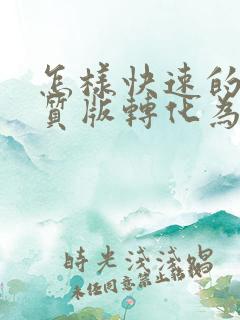 怎樣快速的
質版轉化為
時光淺淺唱
未經同意禁止轉載